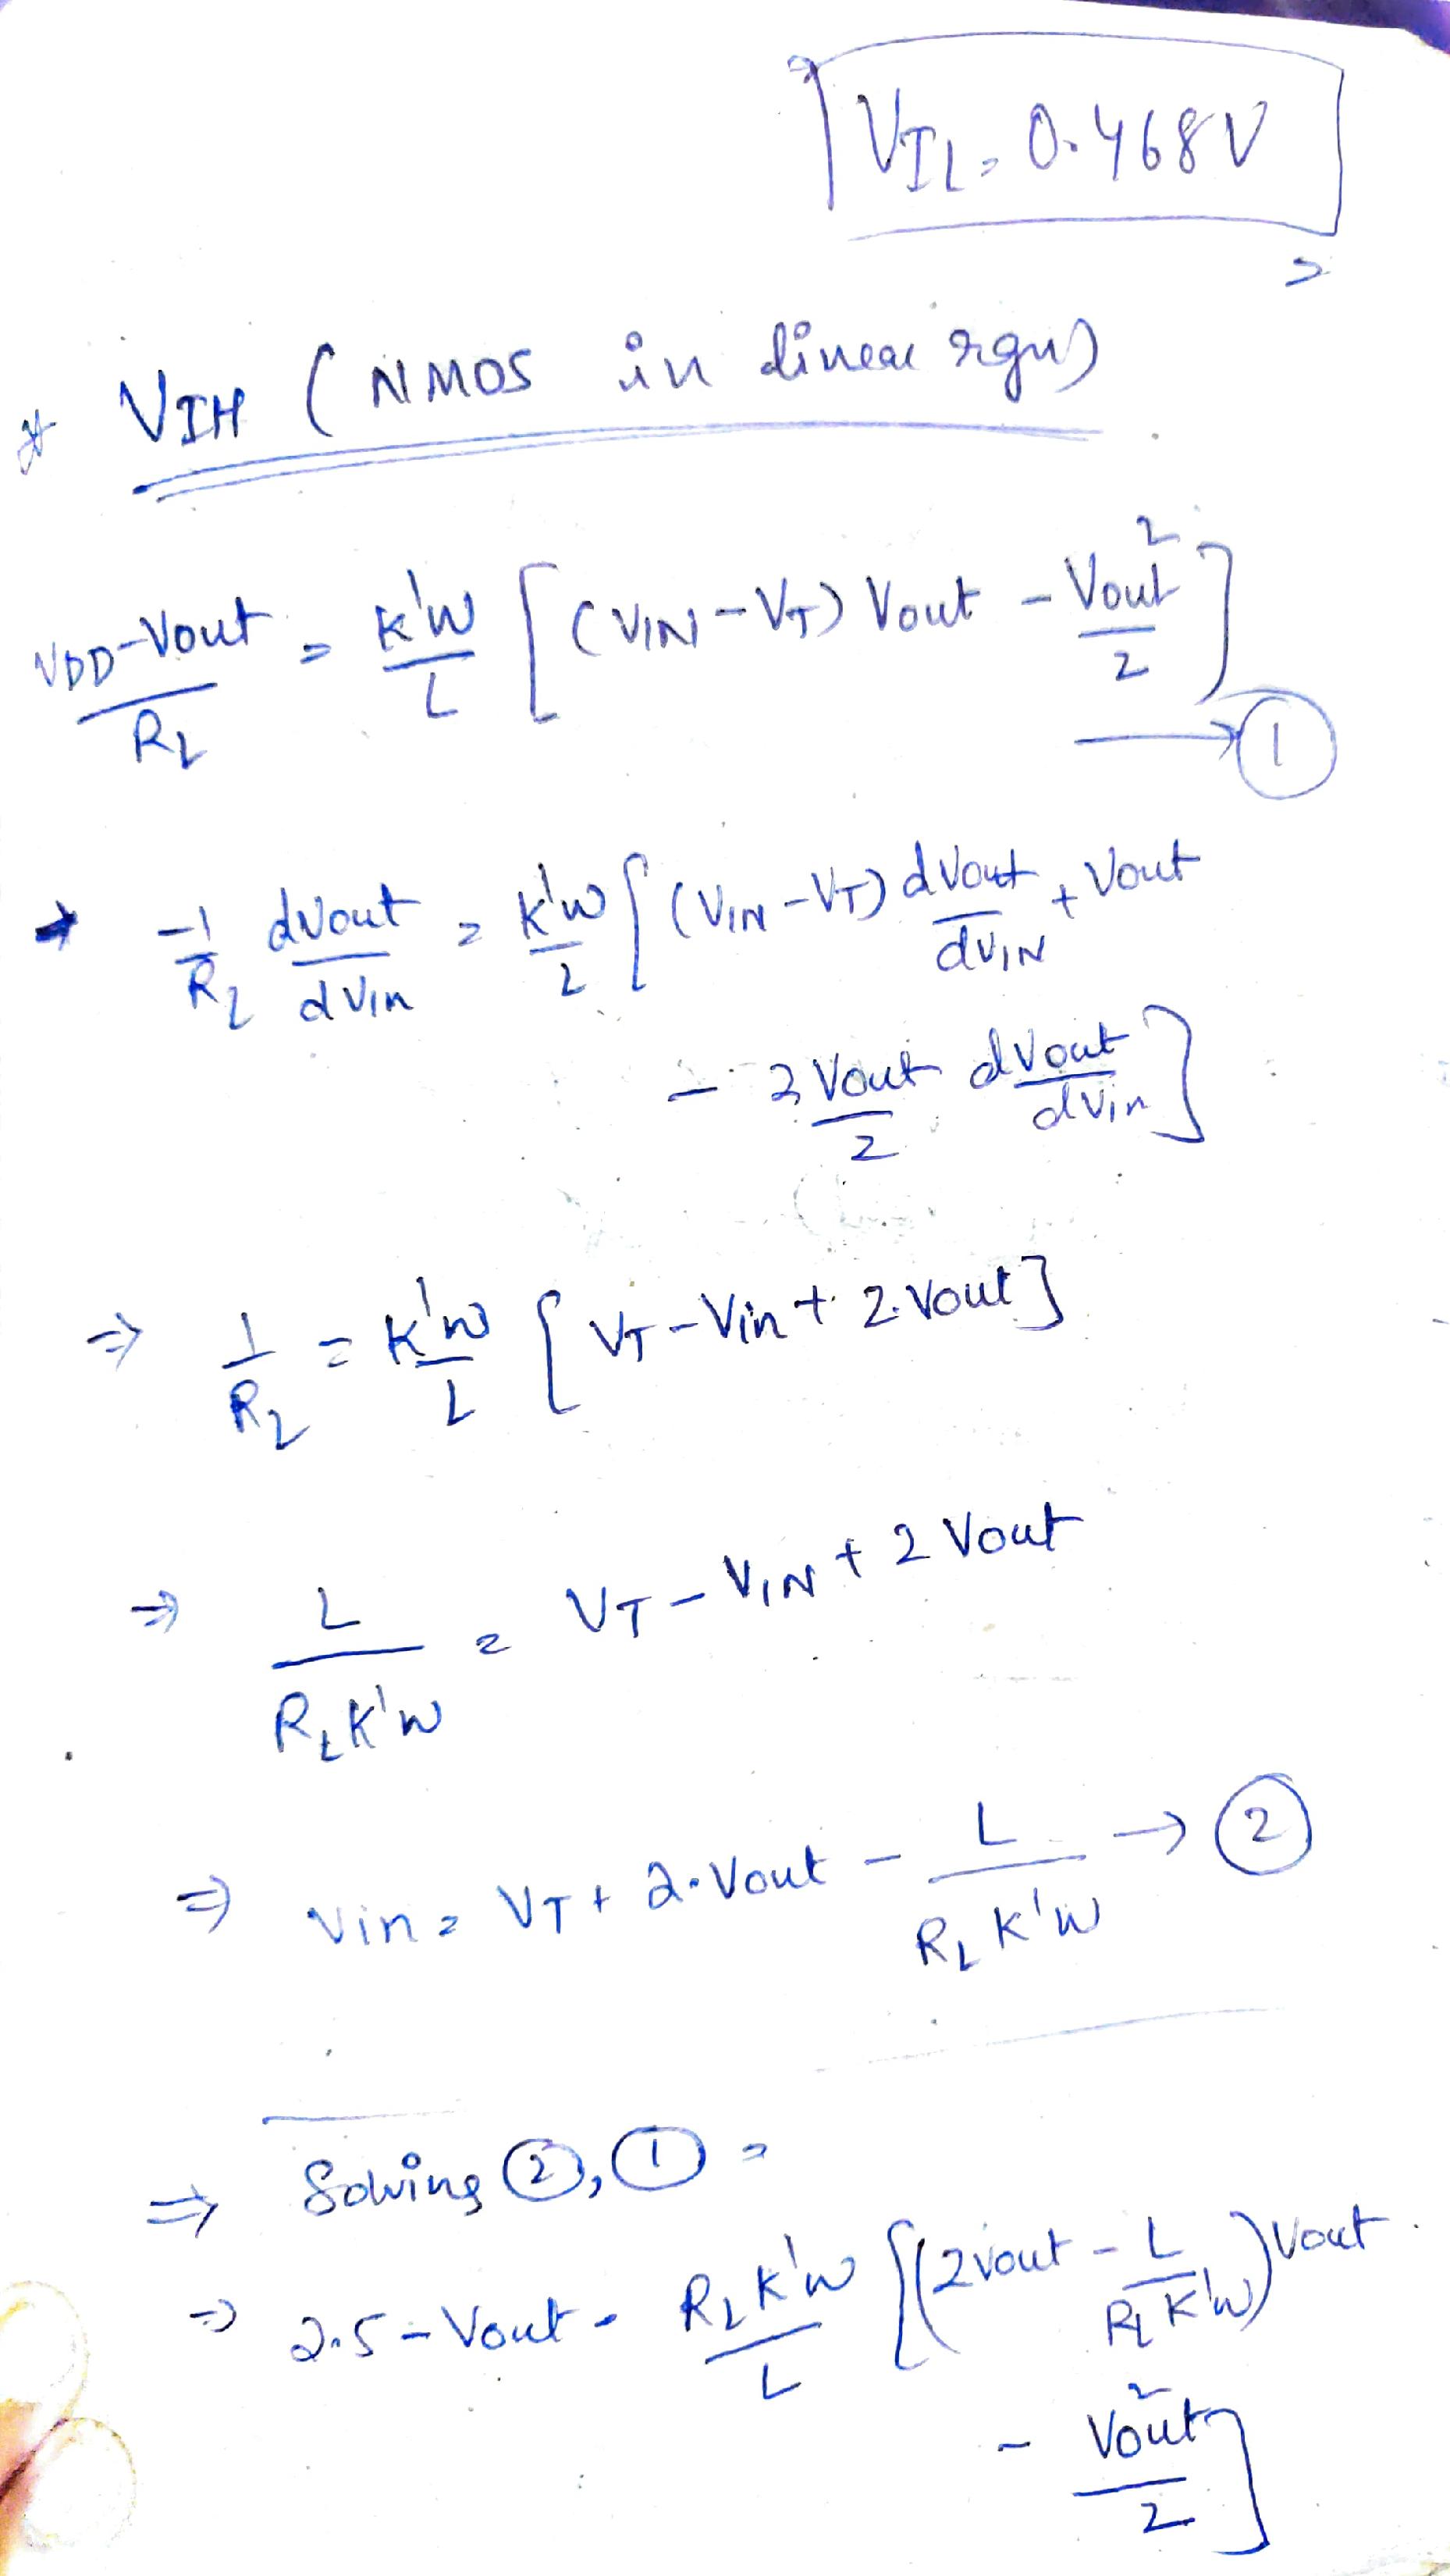 VIL = 0.468V
* VIH (NMOS in linear rgn)
(VDD-Vout)/RL = (K'W/L) [(VIN-VT) Vout - Vout²/2] → ①
→ -1/RL dVout/dVin = K'W/L [(VIN-VT) dVout/dVIN + Vout
- 2Vout/2 dVout/dVin]
⇒ 1/RL = K'W/L [VT-Vin+2.Vout]
⇒ L/(RL K'W) = VT-VIN+2Vout
⇒ Vin = VT+2.Vout - L/(RL K'W) → ②
⇒ Solving ②, ① =
⇒ 2.5-Vout = RL K'W/L [(2Vout - L/(RL K'W)) Vout
- Vout²/2]